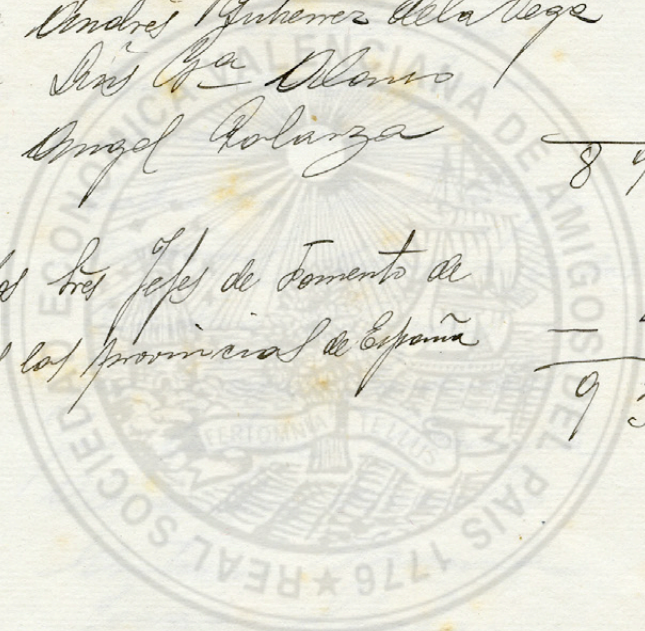 Andrés Gutierrez de la Vega
Luis Gª Alonso
Angel Polanza
8 9
los Sres Jefes de Fomento de
las provincias de España
9
REAL SOCIEDAD ECONOMICA VALENCIANA DE AMIGOS DEL PAIS 1776
FERT OMNIA TELLUS